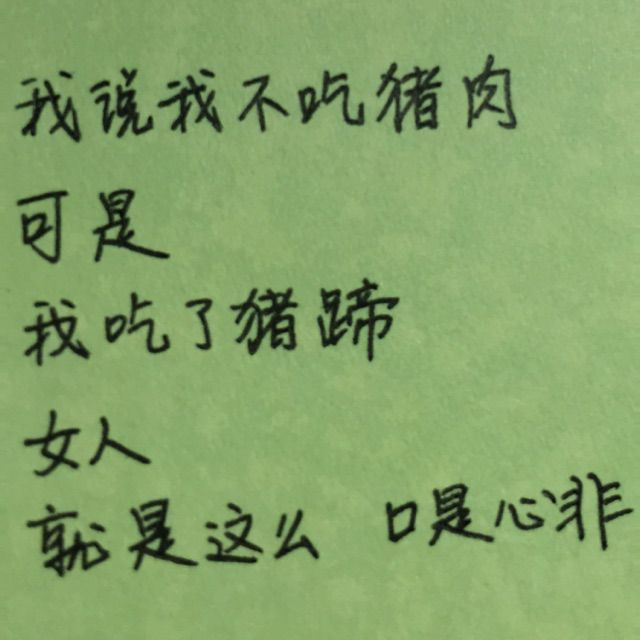 我说我不吃猪肉
可是
我吃了猪蹄
女人
就是这么 口是心非